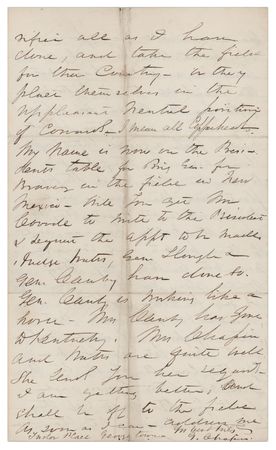 all as I have
done, and take the field
for their Country - or they
place themselves in the
unpleasant neutral position
of Cowards - I mean all
My name is now on the Presi-
dents table for Brig Gen for
Bravery in the field in New
Mexico - Will you get Mr
Covode to write to the President
& request the appt to be made
Judge Watts, Gen. Slough &
Gen. Canby have done so.
Gen. Canby is working like a
horse - Mrs Canby has gone
to Kentucky. Mrs. Chapin
and are quite well
She send you her regard
I am getting better, and
shall be off to the field
as soon as I can - address me
Tudor Place Georgetown
G. Chapin